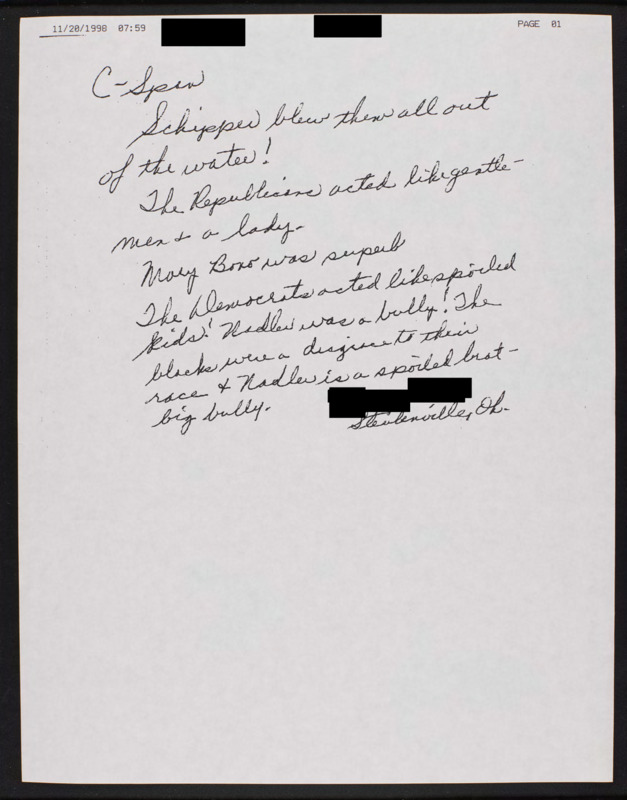 11/20/1998 07:59 PAGE 01
C-Span
Schippers blew them all out
of the water!
The Republicans acted like gentle-
men & a lady.
Mary Bono was superb
The Democrats acted like spoiled
kids! Nadler was a bully! The
blacks were a disgrace to their
race & Nadler is a spoiled brat-
big bully.
Steubenville, Oh.